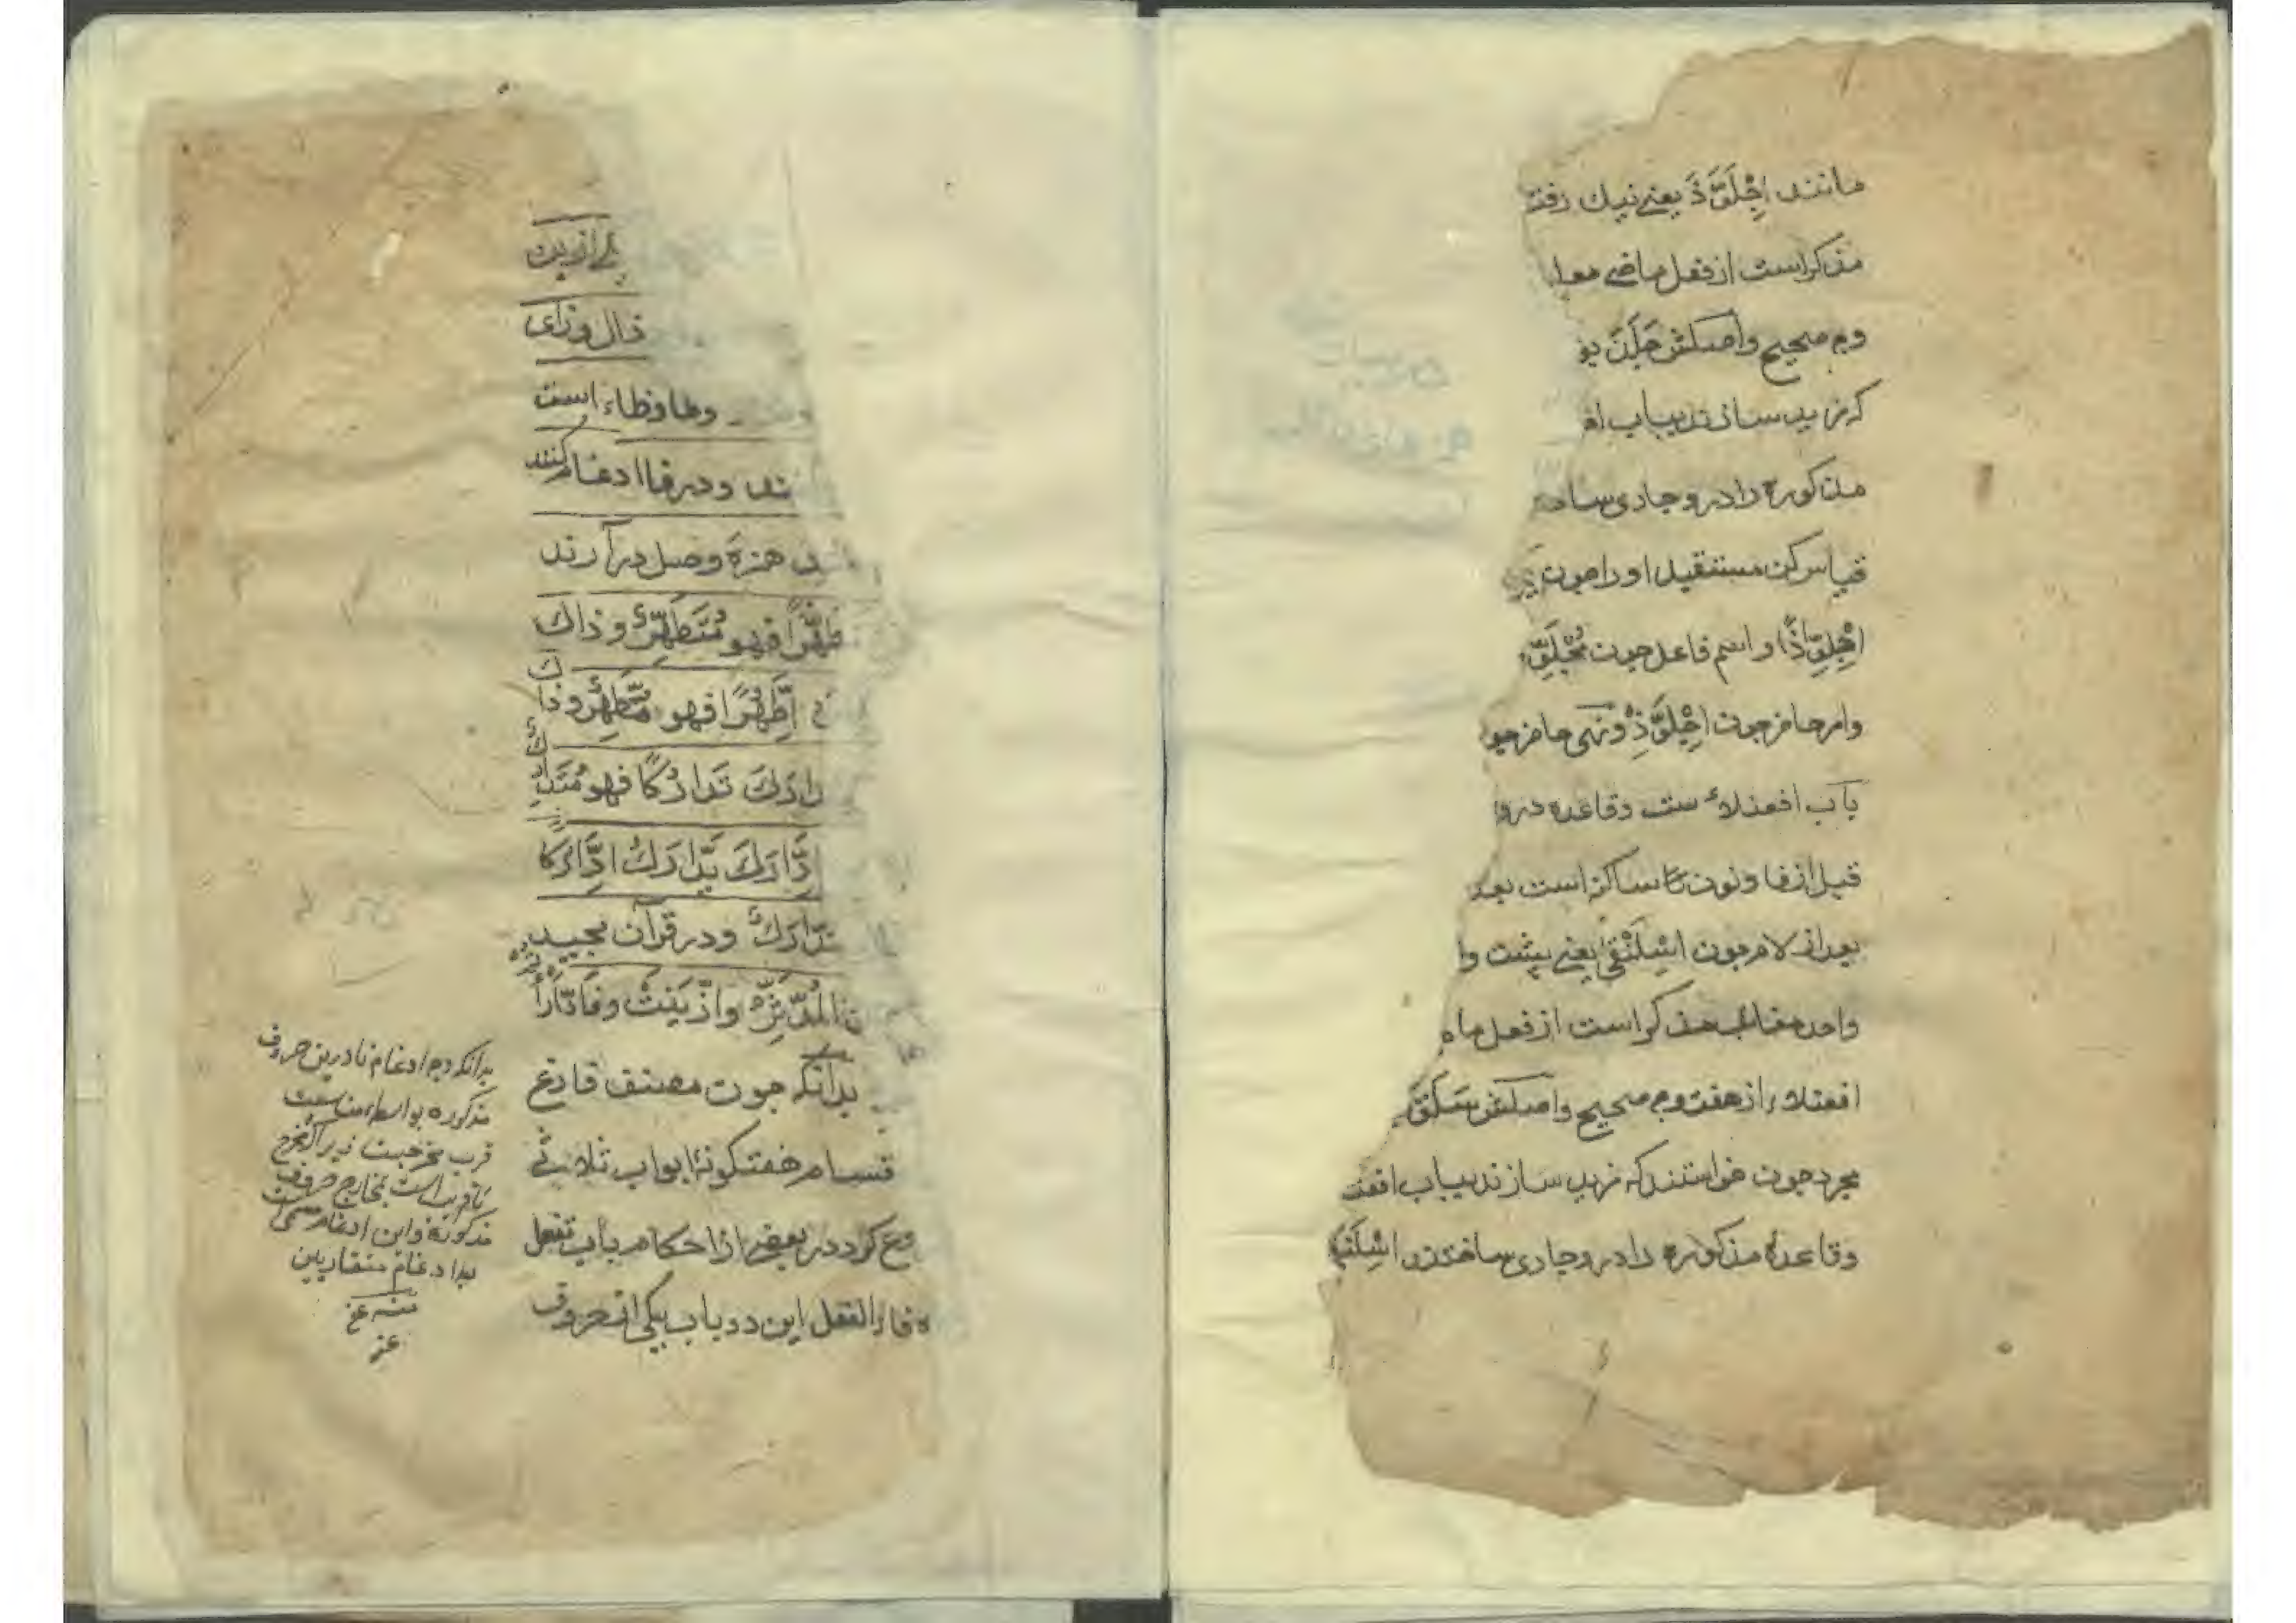 مانند اِجْلَوَّذَ یعنے نیک رفت
مذکر است از فعل ماضے معلو
وم صحیح واصلش جَلَذَ بو
که مزید سازند بباب افـ
مذکوره را در و جاری ساخـ
قیاس کن مستقبل او را چون
اِجْلِوَّاذًا و اسم فاعل چون مُجْلَوِّ
وامر حاضر چون اِجْلَوِّذْ ونهی حاضر چو
باب افعنلاء ست وقاعده درو
قبل از فا و نون تا ساکن است بعد
بعد از لام چون اِسْلَنْقٰی یعنے بپشت وا
واحد مغائب مذکر است از فعل ما
افعنلاء از هفت وم صحیح واصلش سَلَقَ
مجرد چون خواستند که مزید سازند بباب افعنـ
وقاعدهٔ مذکوره را در و جاری ساختند اِسْلَنْقَ
یکے ازین
ذال وزای
وطا وظاء است
ند و در فا ادغام کنند
ند همزهٔ وصل درآرند
طَهُّرًا فهو مُتَطَهِّرٌ و ذاك
اِطَّهُّرًا فهو مُطَّهِّرٌ و ذاك
دَارَكَ تَدَارُكًا فهو مُتَدَارِكٌ
اِدَّارَكَ یَدَّارَكُ اِدَّارُكًا
مُدَّارِكٌ و در قرآن مجید
المُدَّثِّرُ وازَّیَّنَتْ وفَادّٰارَأْ
بدانکه چون مصنف فارغ
قسام هفتگونهٔ ابواب ثلاثے
وع کرد در بعضے از احکام باب تفعل
ه فاء الفعل این دو باب یکی از حروف
بدانکه وجه ادغام تا درین حروف
مذکوره بواسطه مناسبت
قرب مخرجست زیرا که مخرج
تا قریب است بمخارج حروف
مذکوره واین ادغام مسمی است
بادغام متقاربین
منه عف
عنه